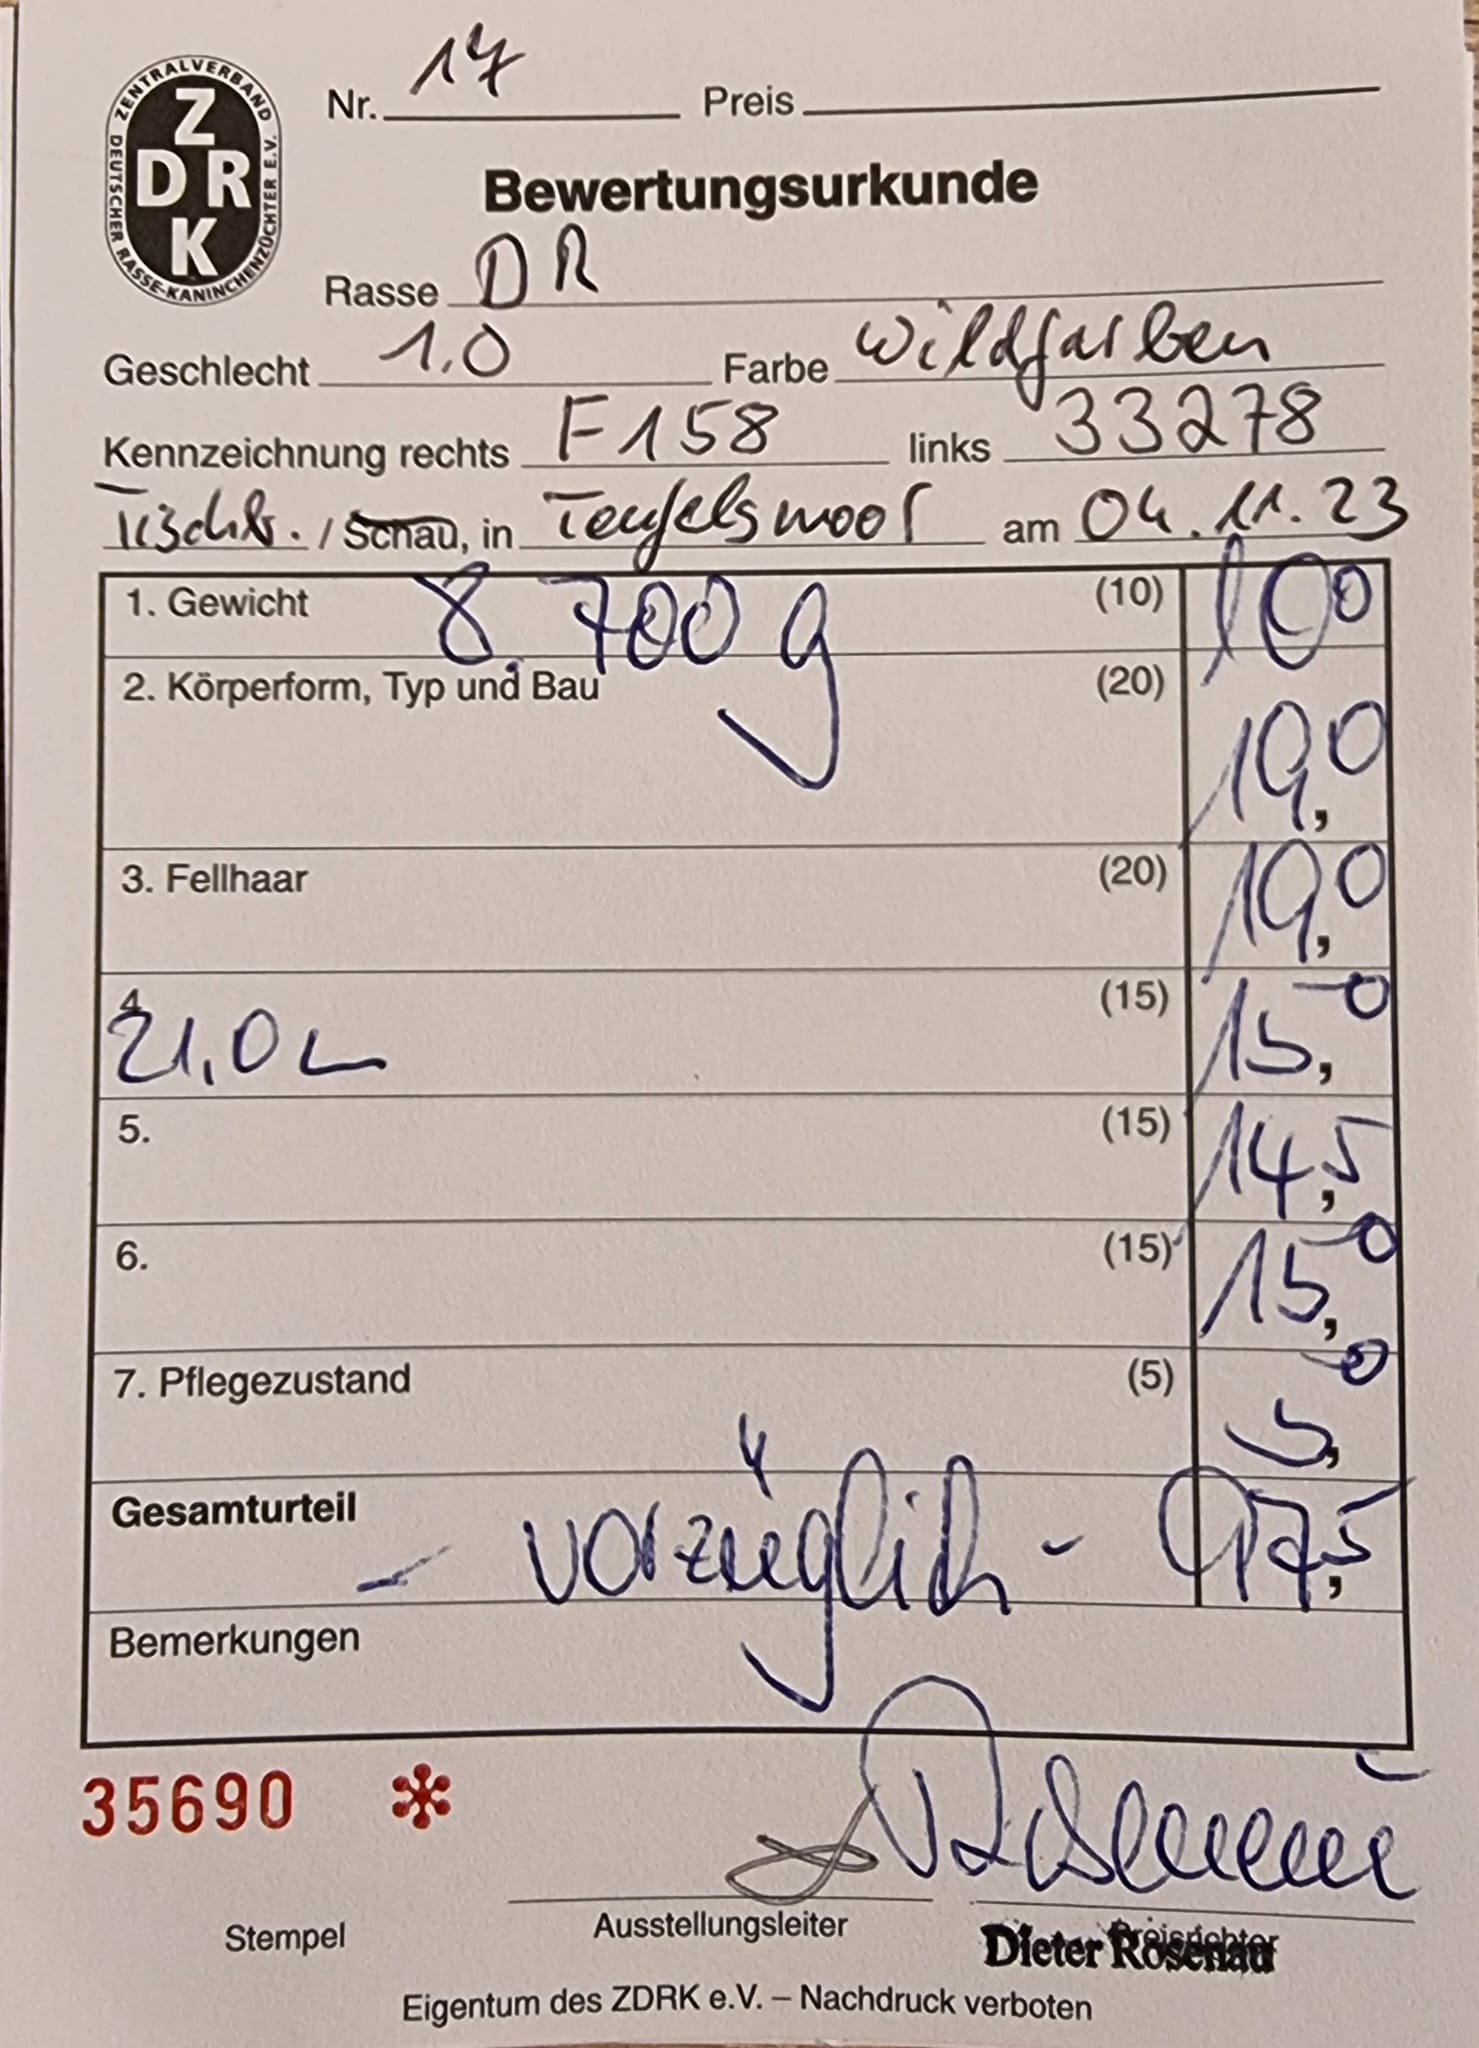 ZENTRALVERBAND
DEUTSCHER RASSE-KANINCHENZÜCHTER E.V.
Z
D R
K
Nr. 17 Preis
Bewertungsurkunde
Rasse DR
Geschlecht 1.0 Farbe wildfarben
Kennzeichnung rechts F158 links 33278
Tischb. / Schau, in Teufelsmoor am 04.11.23
1. Gewicht 8.700 g (10) 10,0
2. Körperform, Typ und Bau (20) 19,0
3. Fellhaar (20) 19,0
4. 21,0 (15) 15,0
5. (15) 14,5
6. (15) 15,0
7. Pflegezustand (5) 5,0
Gesamturteil - vorzüglich - 97,5
Bemerkungen
35690 *
Stempel Ausstellungsleiter Preisrichter
Dieter Rosenau
Eigentum des ZDRK e.V. – Nachdruck verboten